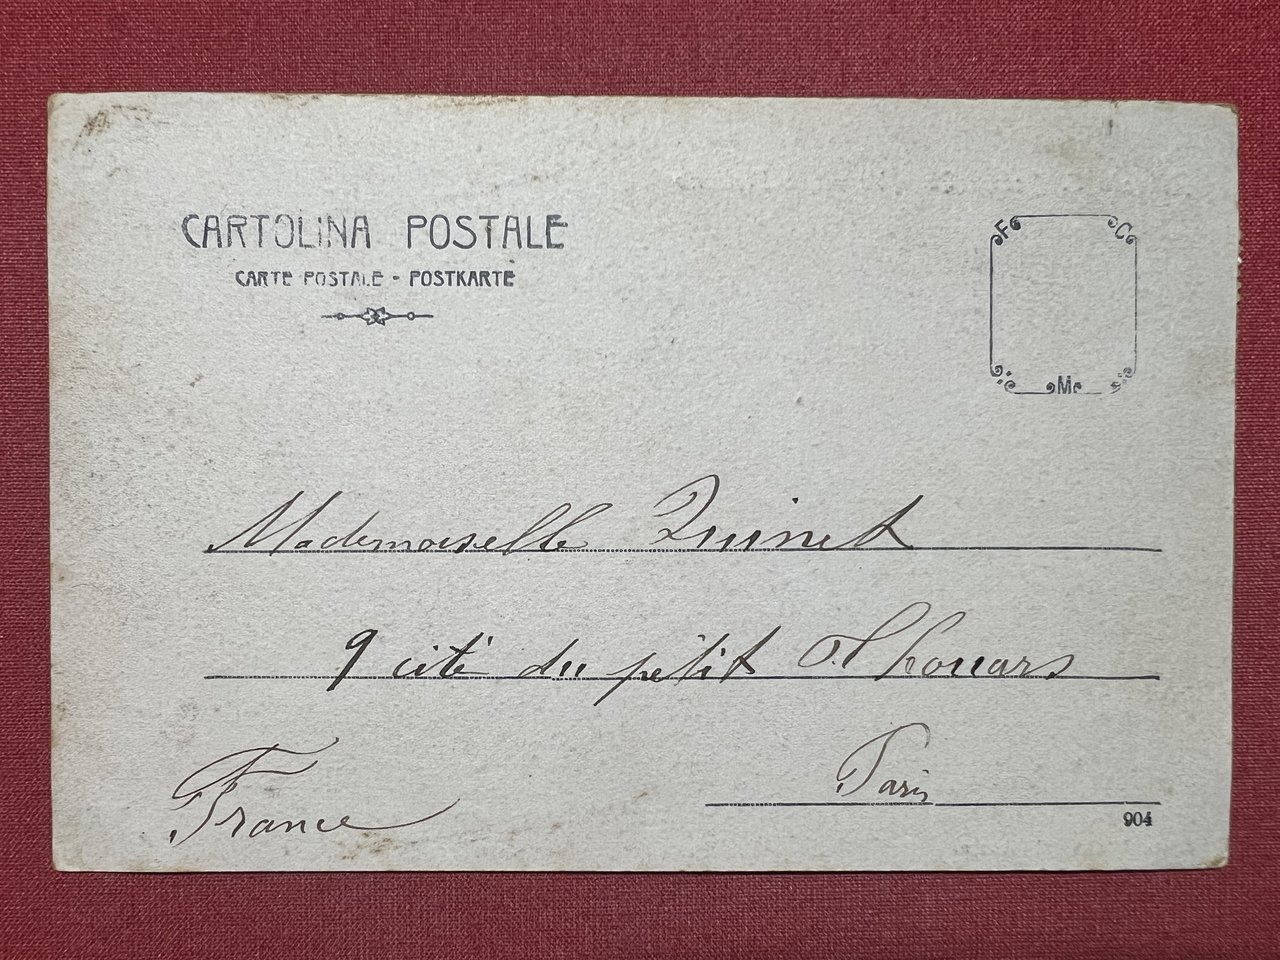 CARTOLINA POSTALE
CARTE POSTALE - POSTKARTE
F C
Me
Mademoiselle Quinet
9 cité du petit Thouars
Paris
France
904